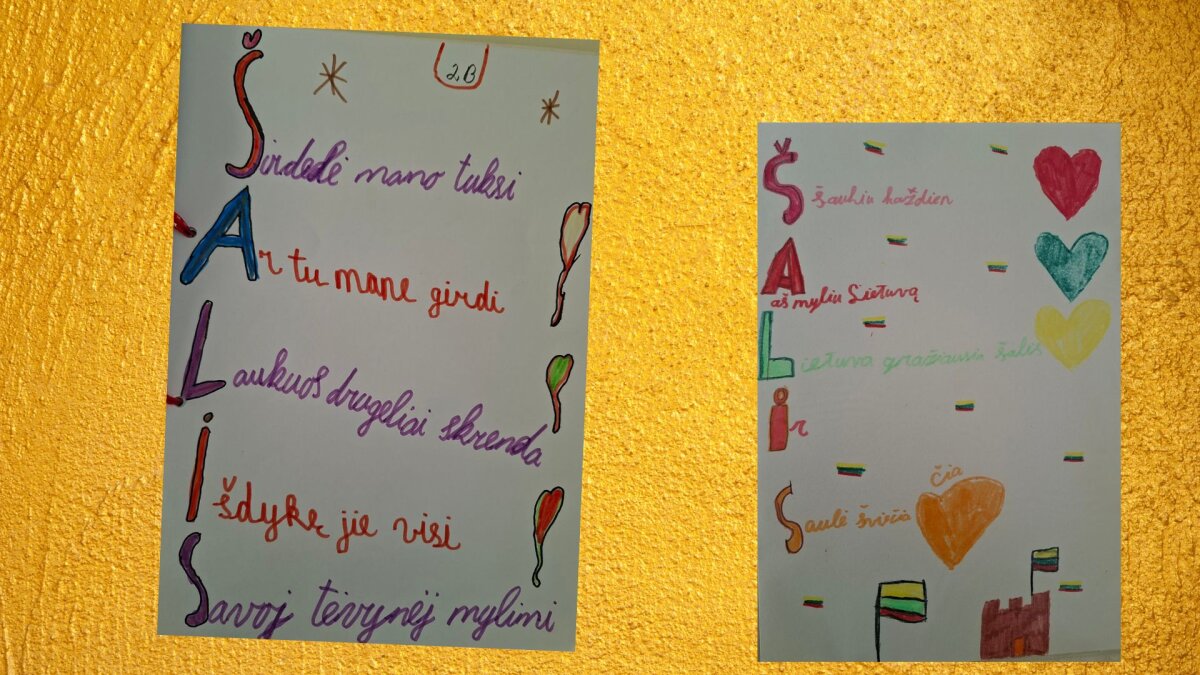 2B
Širdelė mano tuksi
Ar tu mane girdi
Laukuos drugeliai skrenda
Išdykę jie visi
Savoj tėvynėj mylimi
Š šaukiu každien
A aš myliu Lietuvą
Lietuva gražiausia šalis
Ir
čia
Saulė šviečia